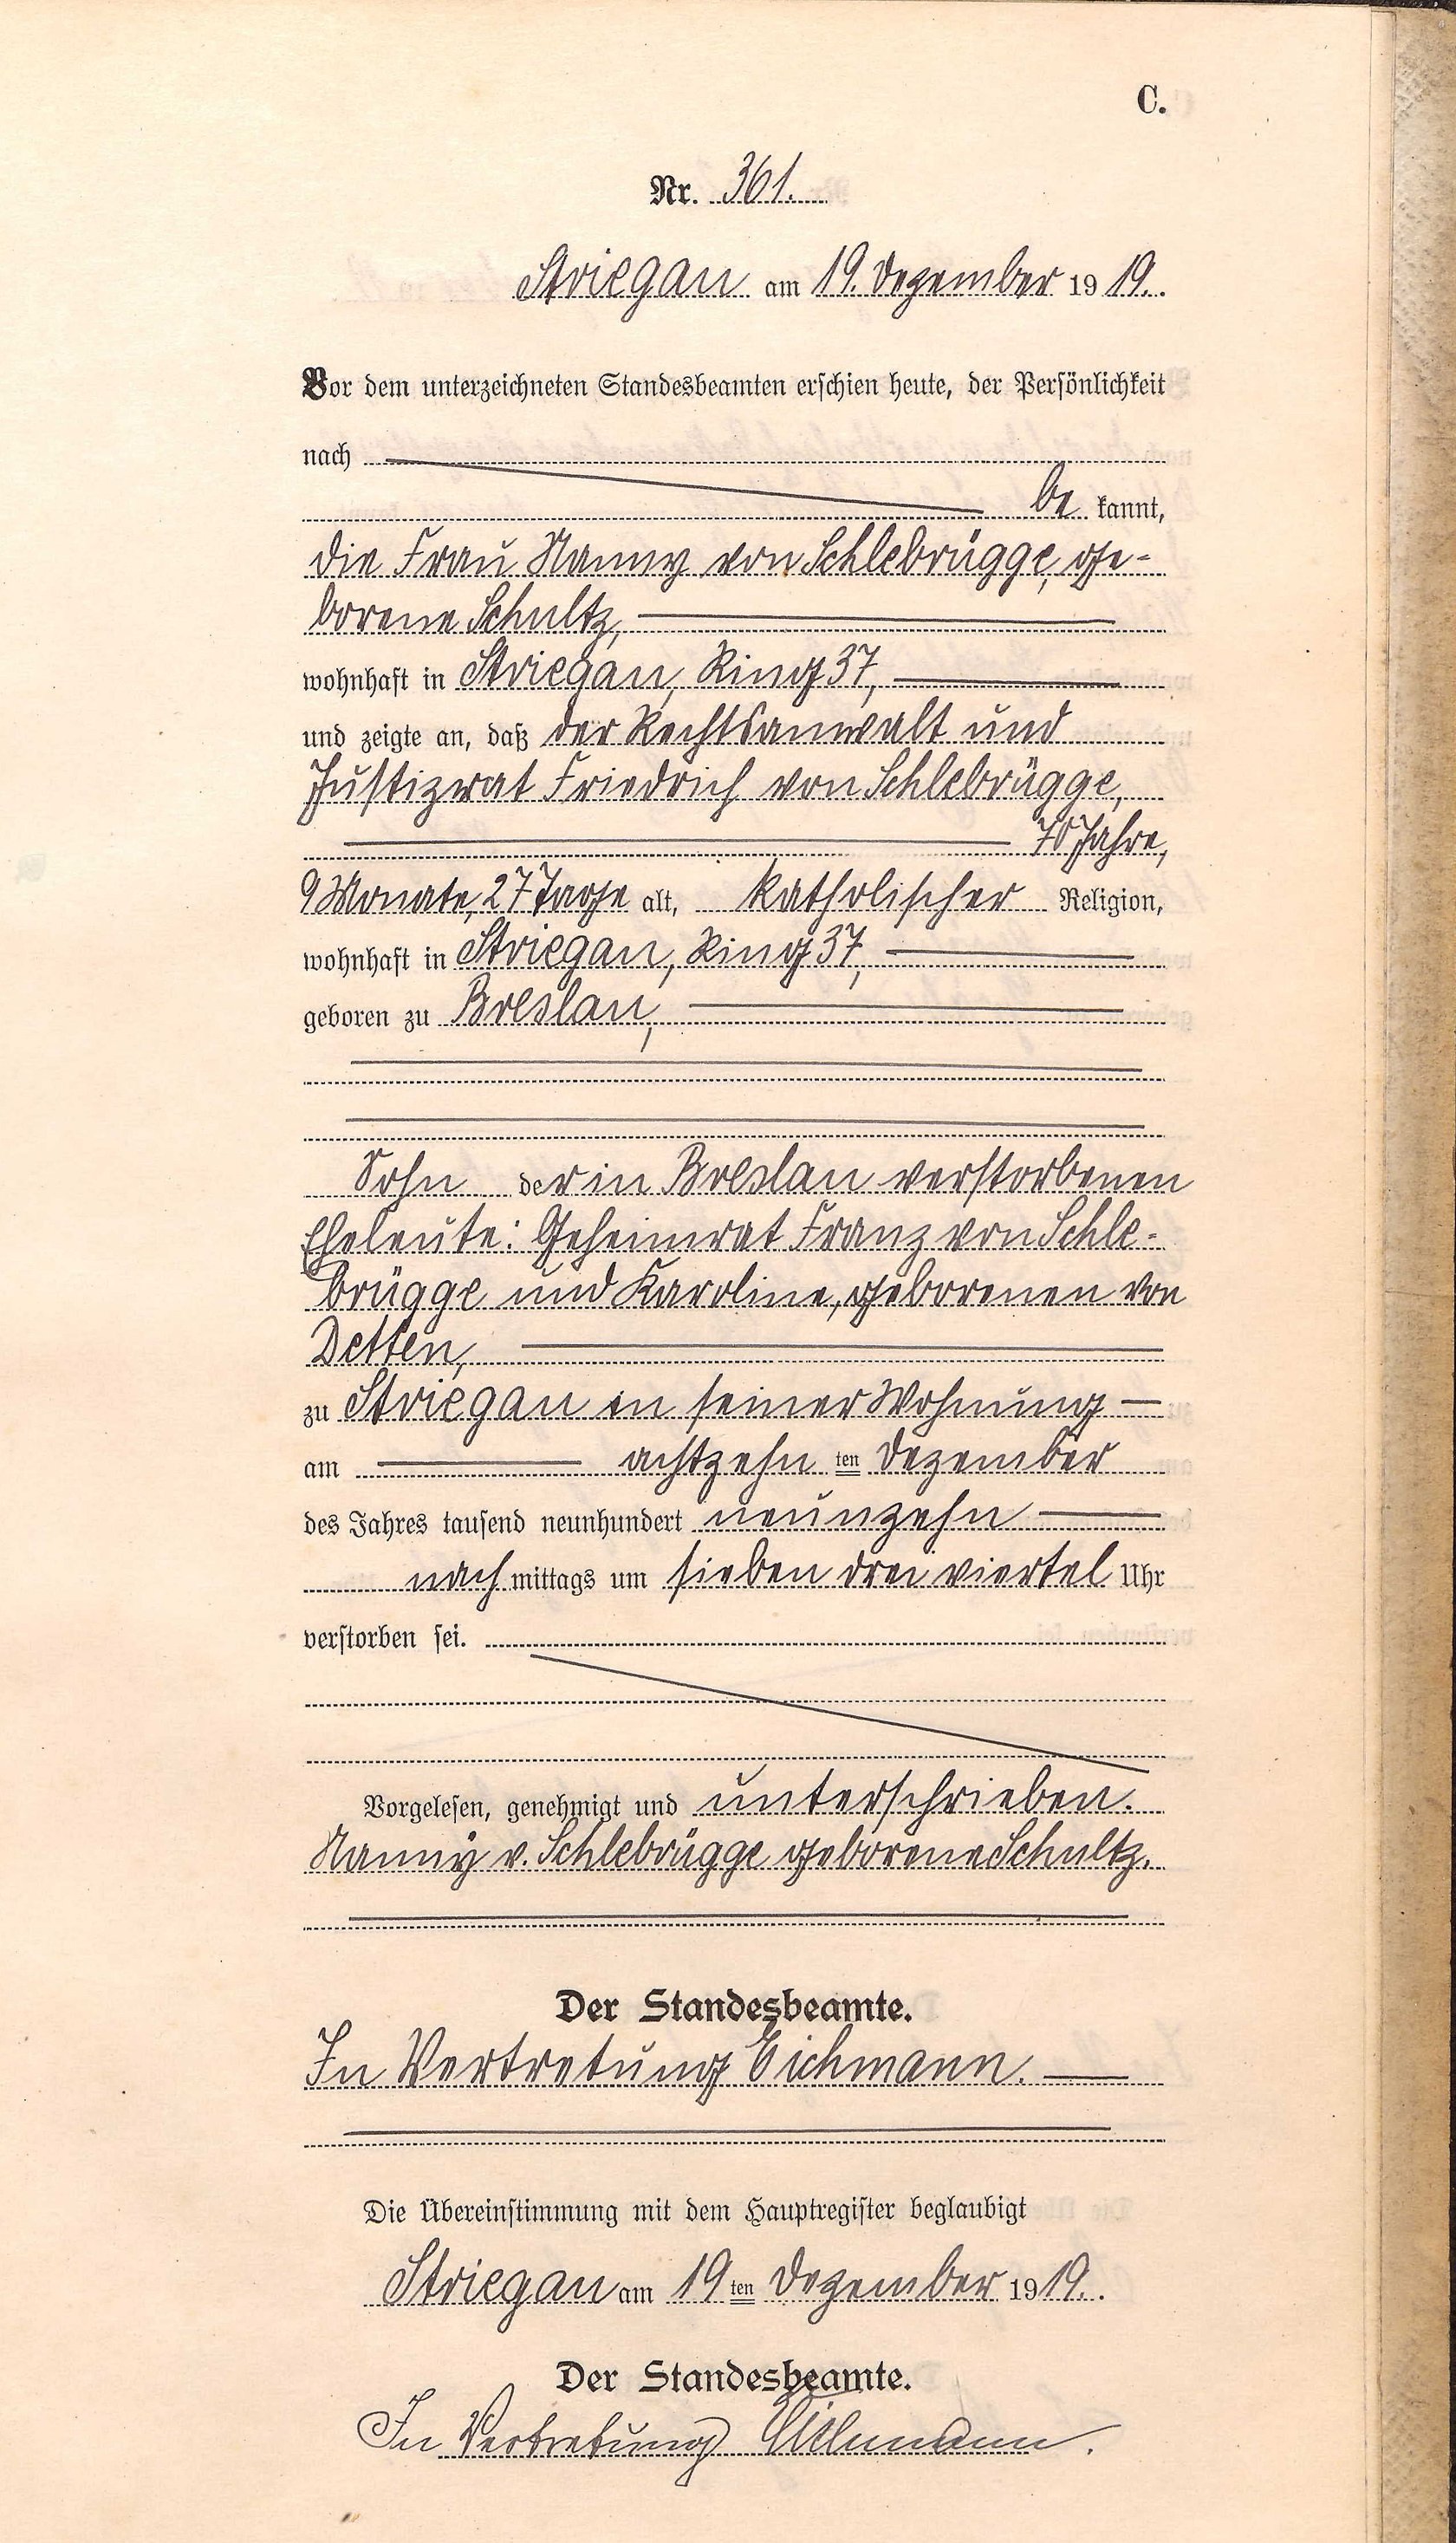 C.
Nr. 361.
Striegau am 19. Dezember 1919.
Vor dem unterzeichneten Standesbeamten erschien heute, der Persönlichkeit
nach
be kannt,
die Frau Nanny von Schlebrügge, ge-
borene Schultz,
wohnhaft in Striegau, Ring 37,
und zeigte an, daß der Rechtsanwalt und
Justizrat Friedrich von Schlebrügge,
70 Jahre,
9 Monate, 27 Tage alt, katholischer Religion,
wohnhaft in Striegau, Ring 37,
geboren zu Breslau,
Sohn der in Breslau verstorbenen
Eheleute: Geheimrat Franz von Schle-
brügge und Karoline, geborenen von
Detten,
zu Striegau in seiner Wohnung
am achtzehn ten Dezember
des Jahres tausend neunhundert neunzehn
nach mittags um sieben drei viertel Uhr
verstorben sei.
Vorgelesen, genehmigt und unterschrieben.
Nanny v. Schlebrügge geborene Schultz.
Der Standesbeamte.
In Vertretung Eichmann.
Die Übereinstimmung mit dem Hauptregister beglaubigt
Striegau am 19 ten Dezember 1919.
Der Standesbeamte.
In Vertretung Eichmann.